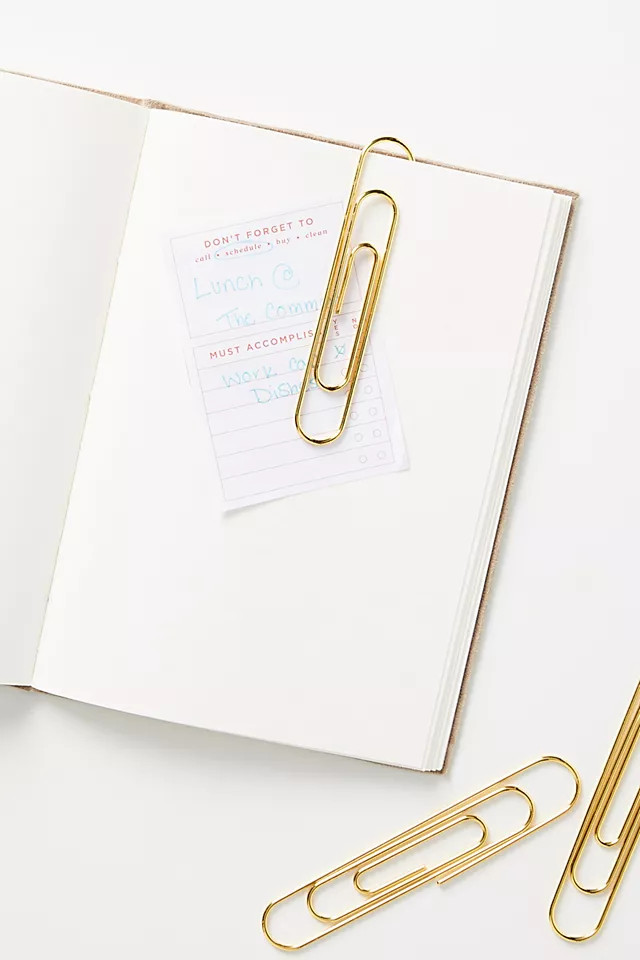 DON'T FORGET TO
call • schedule • buy • clean
Lunch @
The
MUST ACCOMPLIS
YES N
Work